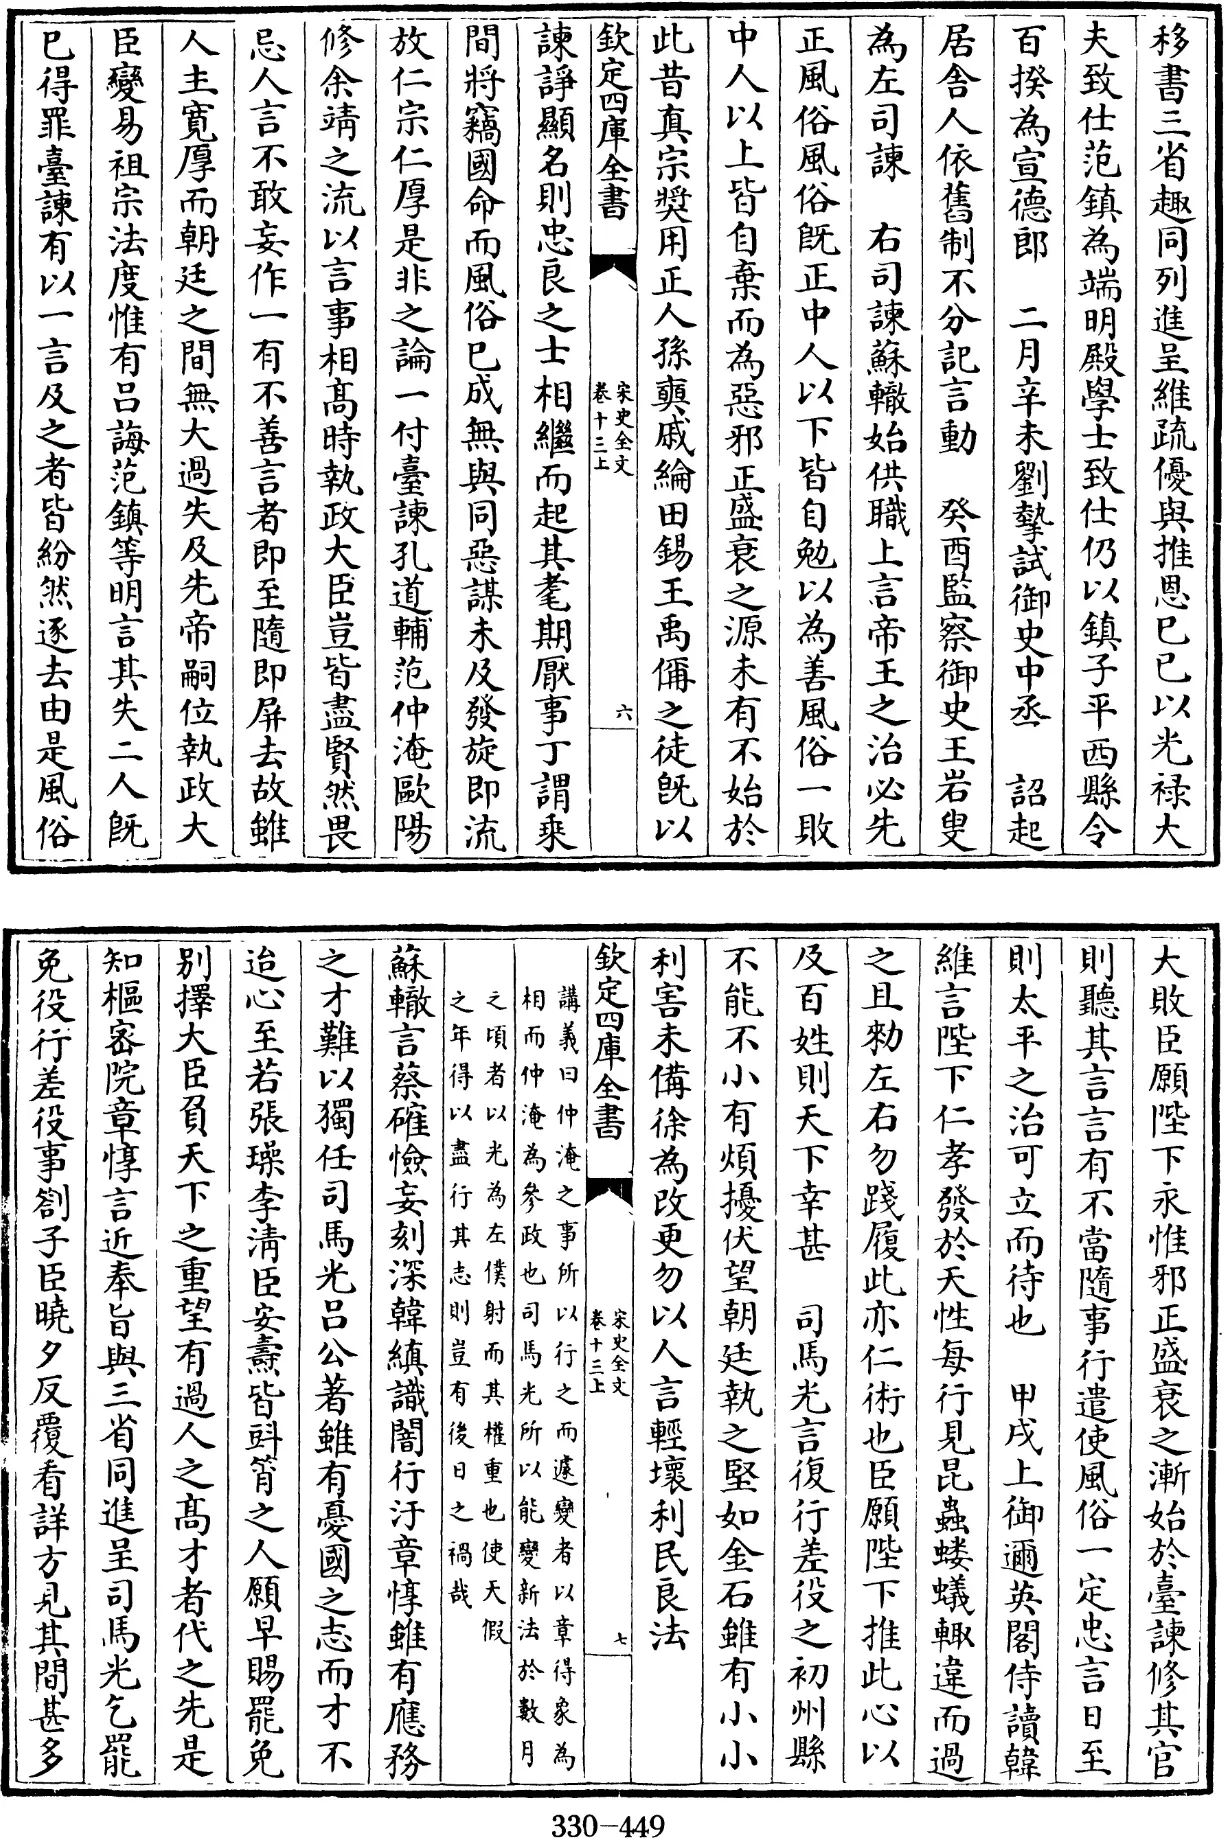 移書三省趣同列進呈維疏優與推恩已巳以光禄大
夫致仕范鎮為端明殿學士致仕仍以鎮子平西縣令
百揆為宣德郎　二月辛未劉摯試御史中丞　詔起
居舍人依舊制不分記言動　癸酉監察御史王岩叟
為左司諫　右司諫蘇轍始供職上言帝王之治必先
正風俗風俗既正中人以下皆自勉以為善風俗一敗
中人以上皆自棄而為惡邪正盛衰之源未有不始於
此昔真宗奬用正人孫奭戚綸田錫王禹偁之徒既以
欽定四庫全書
宋史全文
卷十三上
六
諫諍顯名則忠良之士相繼而起其耄期厭事丁謂乘
間將竊國命而風俗已成無與同惡謀未及發旋即流
放仁宗仁厚是非之論一付臺諫孔道輔范仲淹歐陽
修余靖之流以言事相髙時執政大臣豈皆盡賢然畏
忌人言不敢妄作一有不善言者即至隨即屏去故雖
人主寛厚而朝廷之間無大過失及先帝嗣位執政大
臣變易祖宗法度惟有吕誨范鎮等明言其失二人既
已得罪臺諫有以一言及之者皆紛然逐去由是風俗
大敗臣願陛下永惟邪正盛衰之漸始於臺諫修其官
則聽其言言有不當隨事行遣使風俗一定忠言日至
則太平之治可立而待也　甲戌上御邇英閣侍讀韓
維言陛下仁孝發於天性每行見昆蟲螻蟻輙違而過
之且勑左右勿踐履此亦仁術也臣願陛下推此心以
及百姓則天下幸甚　司馬光言復行差役之初州縣
不能不小有煩擾伏望朝廷執之堅如金石雖有小小
利害未備徐為改更勿以人言輕壞利民良法
欽定四庫全書
宋史全文
卷十三上
七
講義曰仲淹之事所以行之而遽變者以章得象為
相而仲淹為參政也司馬光所以能變新法於數月
之頃者以光為左僕射而其權重也使天假
之年得以盡行其志則豈有後日之禍哉
蘇轍言蔡確憸妄刻深韓縝識闇行汙章惇雖有應務
之才難以獨任司馬光吕公著雖有憂國之志而才不
迨心至若張璪李清臣安燾皆斗筲之人願早賜罷免
别擇大臣負天下之重望有過人之髙才者代之先是
知樞密院章惇言近奉旨與三省同進呈司馬光乞罷
免役行差役事劄子臣曉夕反覆看詳方見其間甚多
330-449